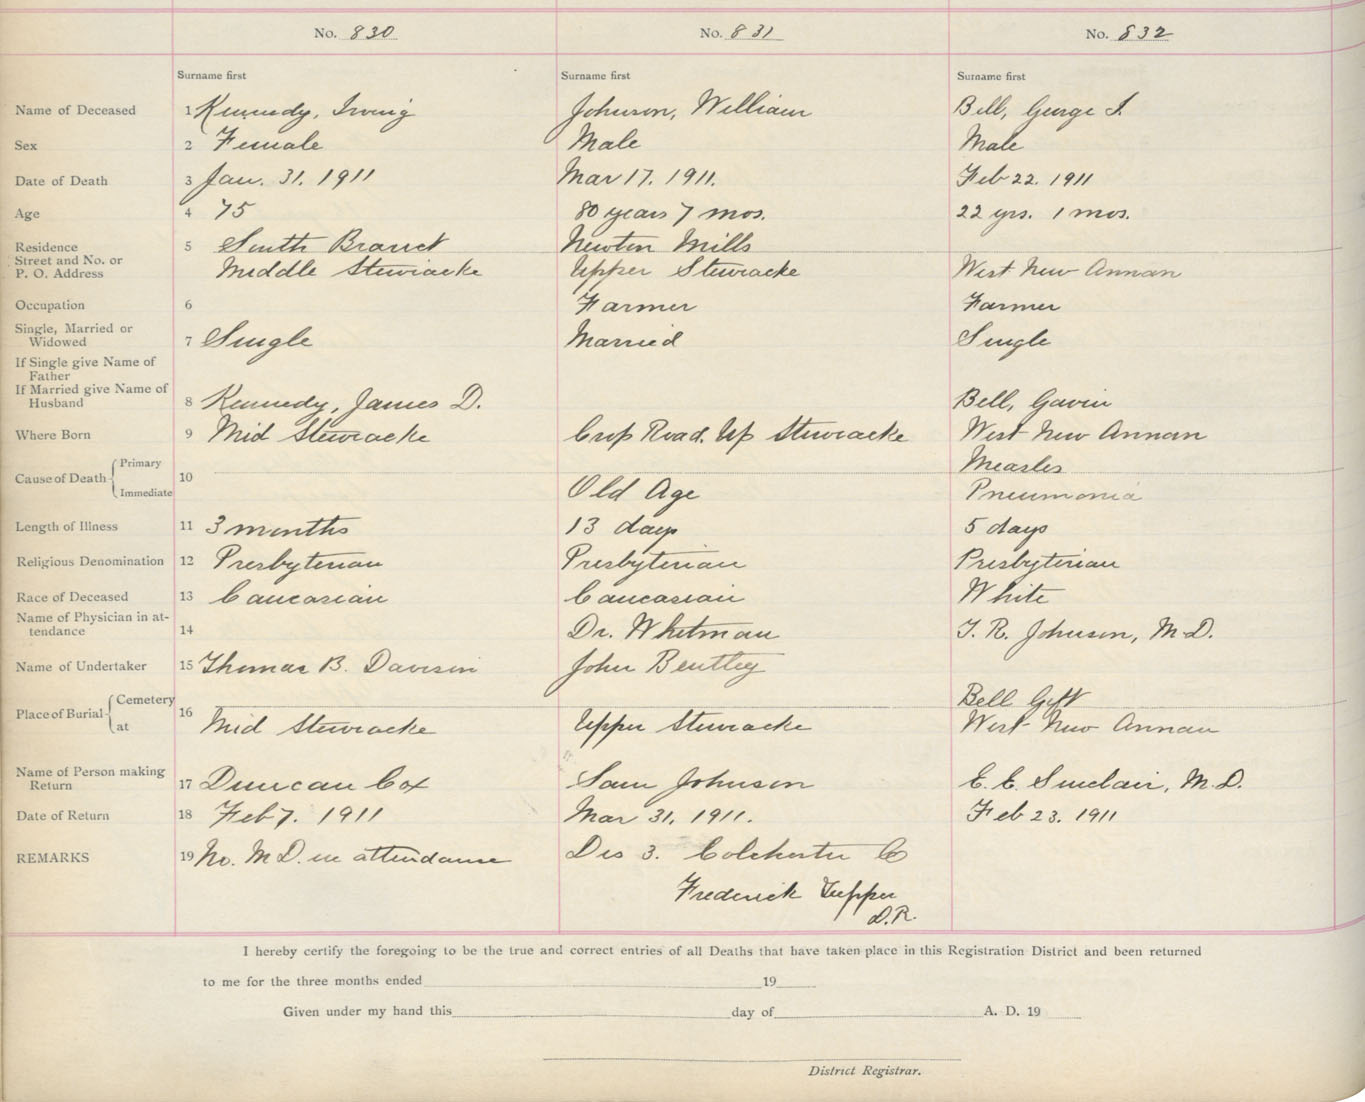 No. 830 No. 831 No. 832
Surname first Surname first Surname first
Name of Deceased 1 Kennedy, Irving Johnson, William Bell, George I.
Sex 2 Female Male Male
Date of Death 3 Jan. 31. 1911 Mar 17. 1911. Feb 22. 1911
Age 4 75 80 years 7 mos. 22 yrs. 1 mos.
Residence 5 South Branch Newton Mills
Street and No. or
P. O. Address Middle Stewiacke Upper Stewiacke West New Annan
Occupation 6 Farmer Farmer
Single, Married or
Widowed 7 Single Married Single
If Single give Name of
Father
If Married give Name of
Husband 8 Kennedy, James D. Bell, Gavin
Where Born 9 Mid Stewiacke Crop Road. Up Stewiacke West New Annan
Cause of Death Primary 10 Measles
Immediate Old Age Pneumonia
Length of Illness 11 3 months 13 days 5 days
Religious Denomination 12 Presbyterian Presbyterian Presbyterian
Race of Deceased 13 Caucasian Caucasian White
Name of Physician in at-
tendance 14 Dr. Whitman T. R. Johnson, M.D.
Name of Undertaker 15 Thomas B. Davison John Bentley
Place of Burial Cemetery 16 Bell Gift
at Mid Stewiacke Upper Stewiacke West New Annan
Name of Person making
Return 17 Duncan Cox Sam Johnson E. E. Sinclair, M.D.
Date of Return 18 Feb 7. 1911 Mar 31. 1911. Feb 23. 1911
REMARKS 19 No. M D. in attendance Dis 3. Colchester Co
Frederick Tupper
D.R.
I hereby certify the foregoing to be the true and correct entries of all Deaths that have taken place in this Registration District and been returned
to me for the three months ended 19
Given under my hand this day of A. D. 19
District Registrar.